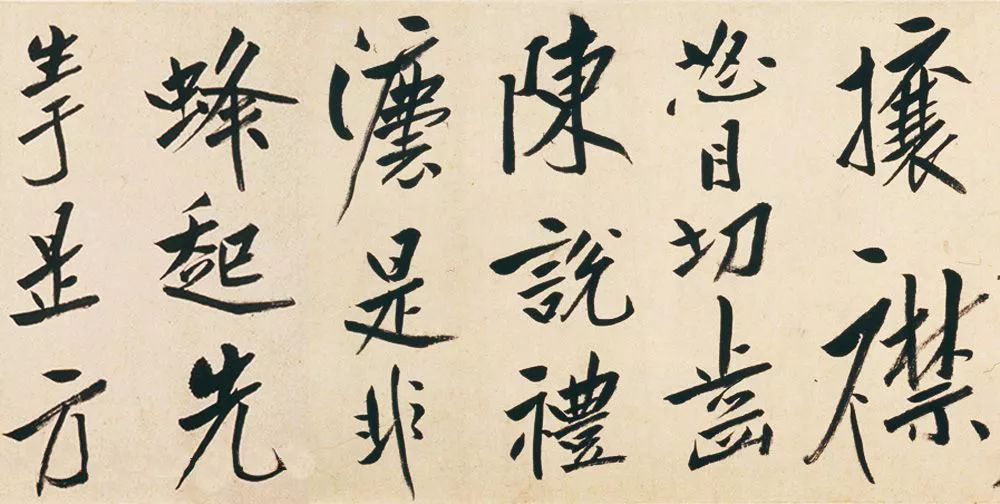 攘襟
怒目切齒
陳說禮
灋是非
蜂起先
生于是方